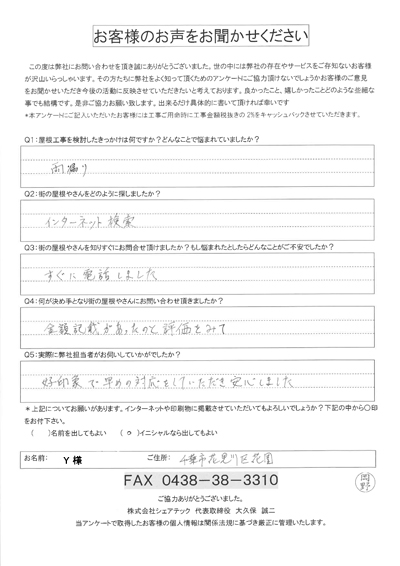 お客様のお声をお聞かせください
この度は弊社にお問い合わせを頂き誠にありがとうございました。世の中には弊社の存在やサービスをご存知ないお客様
が沢山いらっしゃいます。その方たちに弊社をよく知って頂くためのアンケートにご協力頂けないでしょうかお客様のご意見
をお聞かせいただき今後の活動に反映させていただきたいと考えております。良かったこと、嬉しかったことどのような些細な
事でも結構です。是非ご協力お願い致します。出来るだけ具体的に書いて頂ければ幸いです
*本アンケートにご記入いただいたお客様には工事ご用命時に工事金額税抜きの2%をキャッシュバックさせていただきます。
Q1:屋根工事を検討したきっかけは何ですか?どんなことで悩まれていましたか?
雨漏り
Q2:街の屋根やさんをどのように探しましたか?
インターネット検索
Q3:街の屋根やさんを知りすぐにお問合せ頂けましたか?もし悩まれたとしたらどんなことがご不安でしたか?
すぐに電話しました
Q4:何が決め手となり街の屋根やさんにお問い合わせ頂きましたか?
金額記載があったのと評価をみて
Q5:実際に弊社担当者がお伺いしていかがでしたか?
好印象で早めの対応をしていただき安心しました
*上記についてお願いがあります。インターネットや印刷物に掲載させていただいてもよろしいでしょうか?下記の中から〇印
をお付け下さい。
( )名前を出してもよい ( o )イニシャルなら出してもよい
お名前: Y様 ご住所: 千葉市花見川区花園
FAX 0438-38-3310
岡野
ご協力ありがとうございました。
株式会社シェアテック 代表取締役 大久保 誠二
当アンケートで取得したお客様の個人情報は関係法規に基づき厳正に管理いたします。